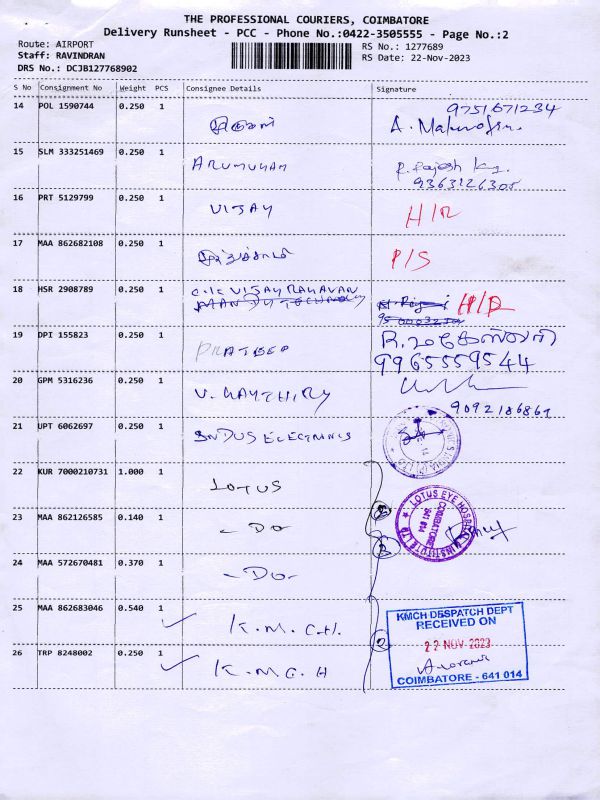 THE PROFESSIONAL COURIERS, COIMBATORE
Delivery Runsheet - PCC - Phone No.:0422-3505555 - Page No.:2
Route: AIRPORT
Staff: RAVINDRAN
DRS No.: DCJB127768902
RS No.: 1277689
RS Date: 22-Nov-2023
S No Consignment No Weight PCS Consignee Details Signature
14 POL 1590744 0.250 1
9751671234
15 SLM 333251469 0.250 1 ARUMUHAM R. Rajesh
9363126305
16 PRT 5129799 0.250 1 VIJAY H/R
17 MAA 862682108 0.250 1 P/S
18 HSR 2908789 0.250 1 VIJAY RAHAVAN H/R
19 DPI 155823 0.250 1 PRATEEP R. மகேஸ்வரி
9965559544
20 GPM 5316236 0.250 1 V. GAYTHIRY
9092186869
21 UPT 6062697 0.250 1 INDUS ELECTRONICS
22 KUR 7000210731 1.000 1 LOTUS
23 MAA 862126585 0.140 1 - Do
LOTUS EYE HOSPITAL & INSTITUTE LTD
COIMBATORE
641 014
24 MAA 572670481 0.370 1 - Do -
25 MAA 862683046 0.540 1 K.M.C.H.
26 TRP 8248002 0.250 1 K.M.C.H
KMCH DESPATCH DEPT
RECEIVED ON
22 NOV 2023
COIMBATORE - 641 014